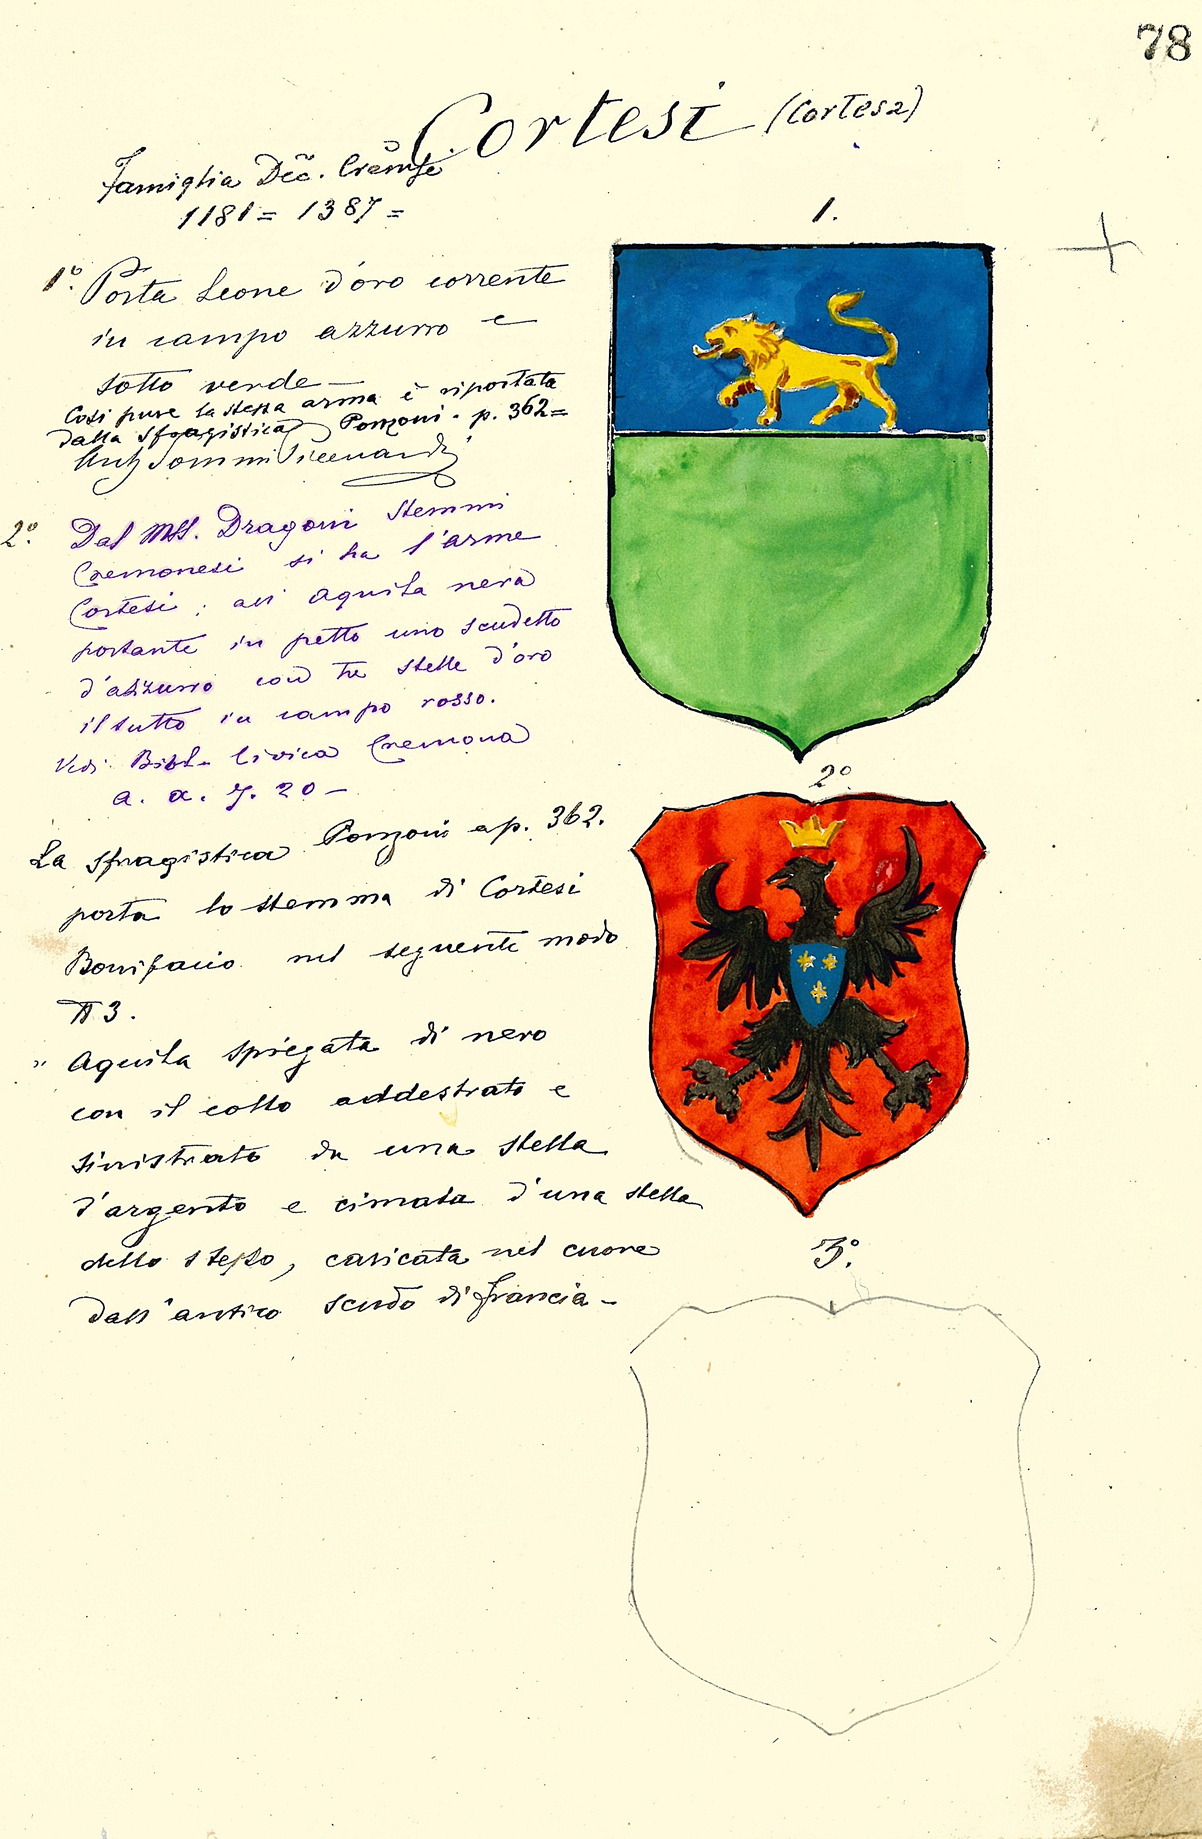 78
Cortesi (Cortesa)
Famiglia Dec̃. Crem̃se
1181 = 1387 =
1.
1º. Porta Leone d'oro corrente
in campo azzurro e
sotto verde —
Così pure la stessa arma è riportata
dalla Sfragistica Ponzoni - p. 362 =
Sommi Picenardi
2º. Dal MSS. Dragoni Stemmi
Cremonesi si ha l'arme
Cortesi: aquila nera
portante in petto uno scudetto
d'azzurro con tre stelle d'oro
il tutto in campo rosso.
Vedi Bibl. Civica Cremona
a. a. 7. 20 —
2º
La sfragistica Ponzoni a p. 362.
porta lo stemma di Cortesi
Bonifacio nel seguente modo
N 3.
" Aquila spiegata di nero
con il collo addestrato e
sinistrato da una stella
d'argento e cimata d'una stella
dello stesso, caricata nel cuore
dall'antico scudo di Francia —
3º.